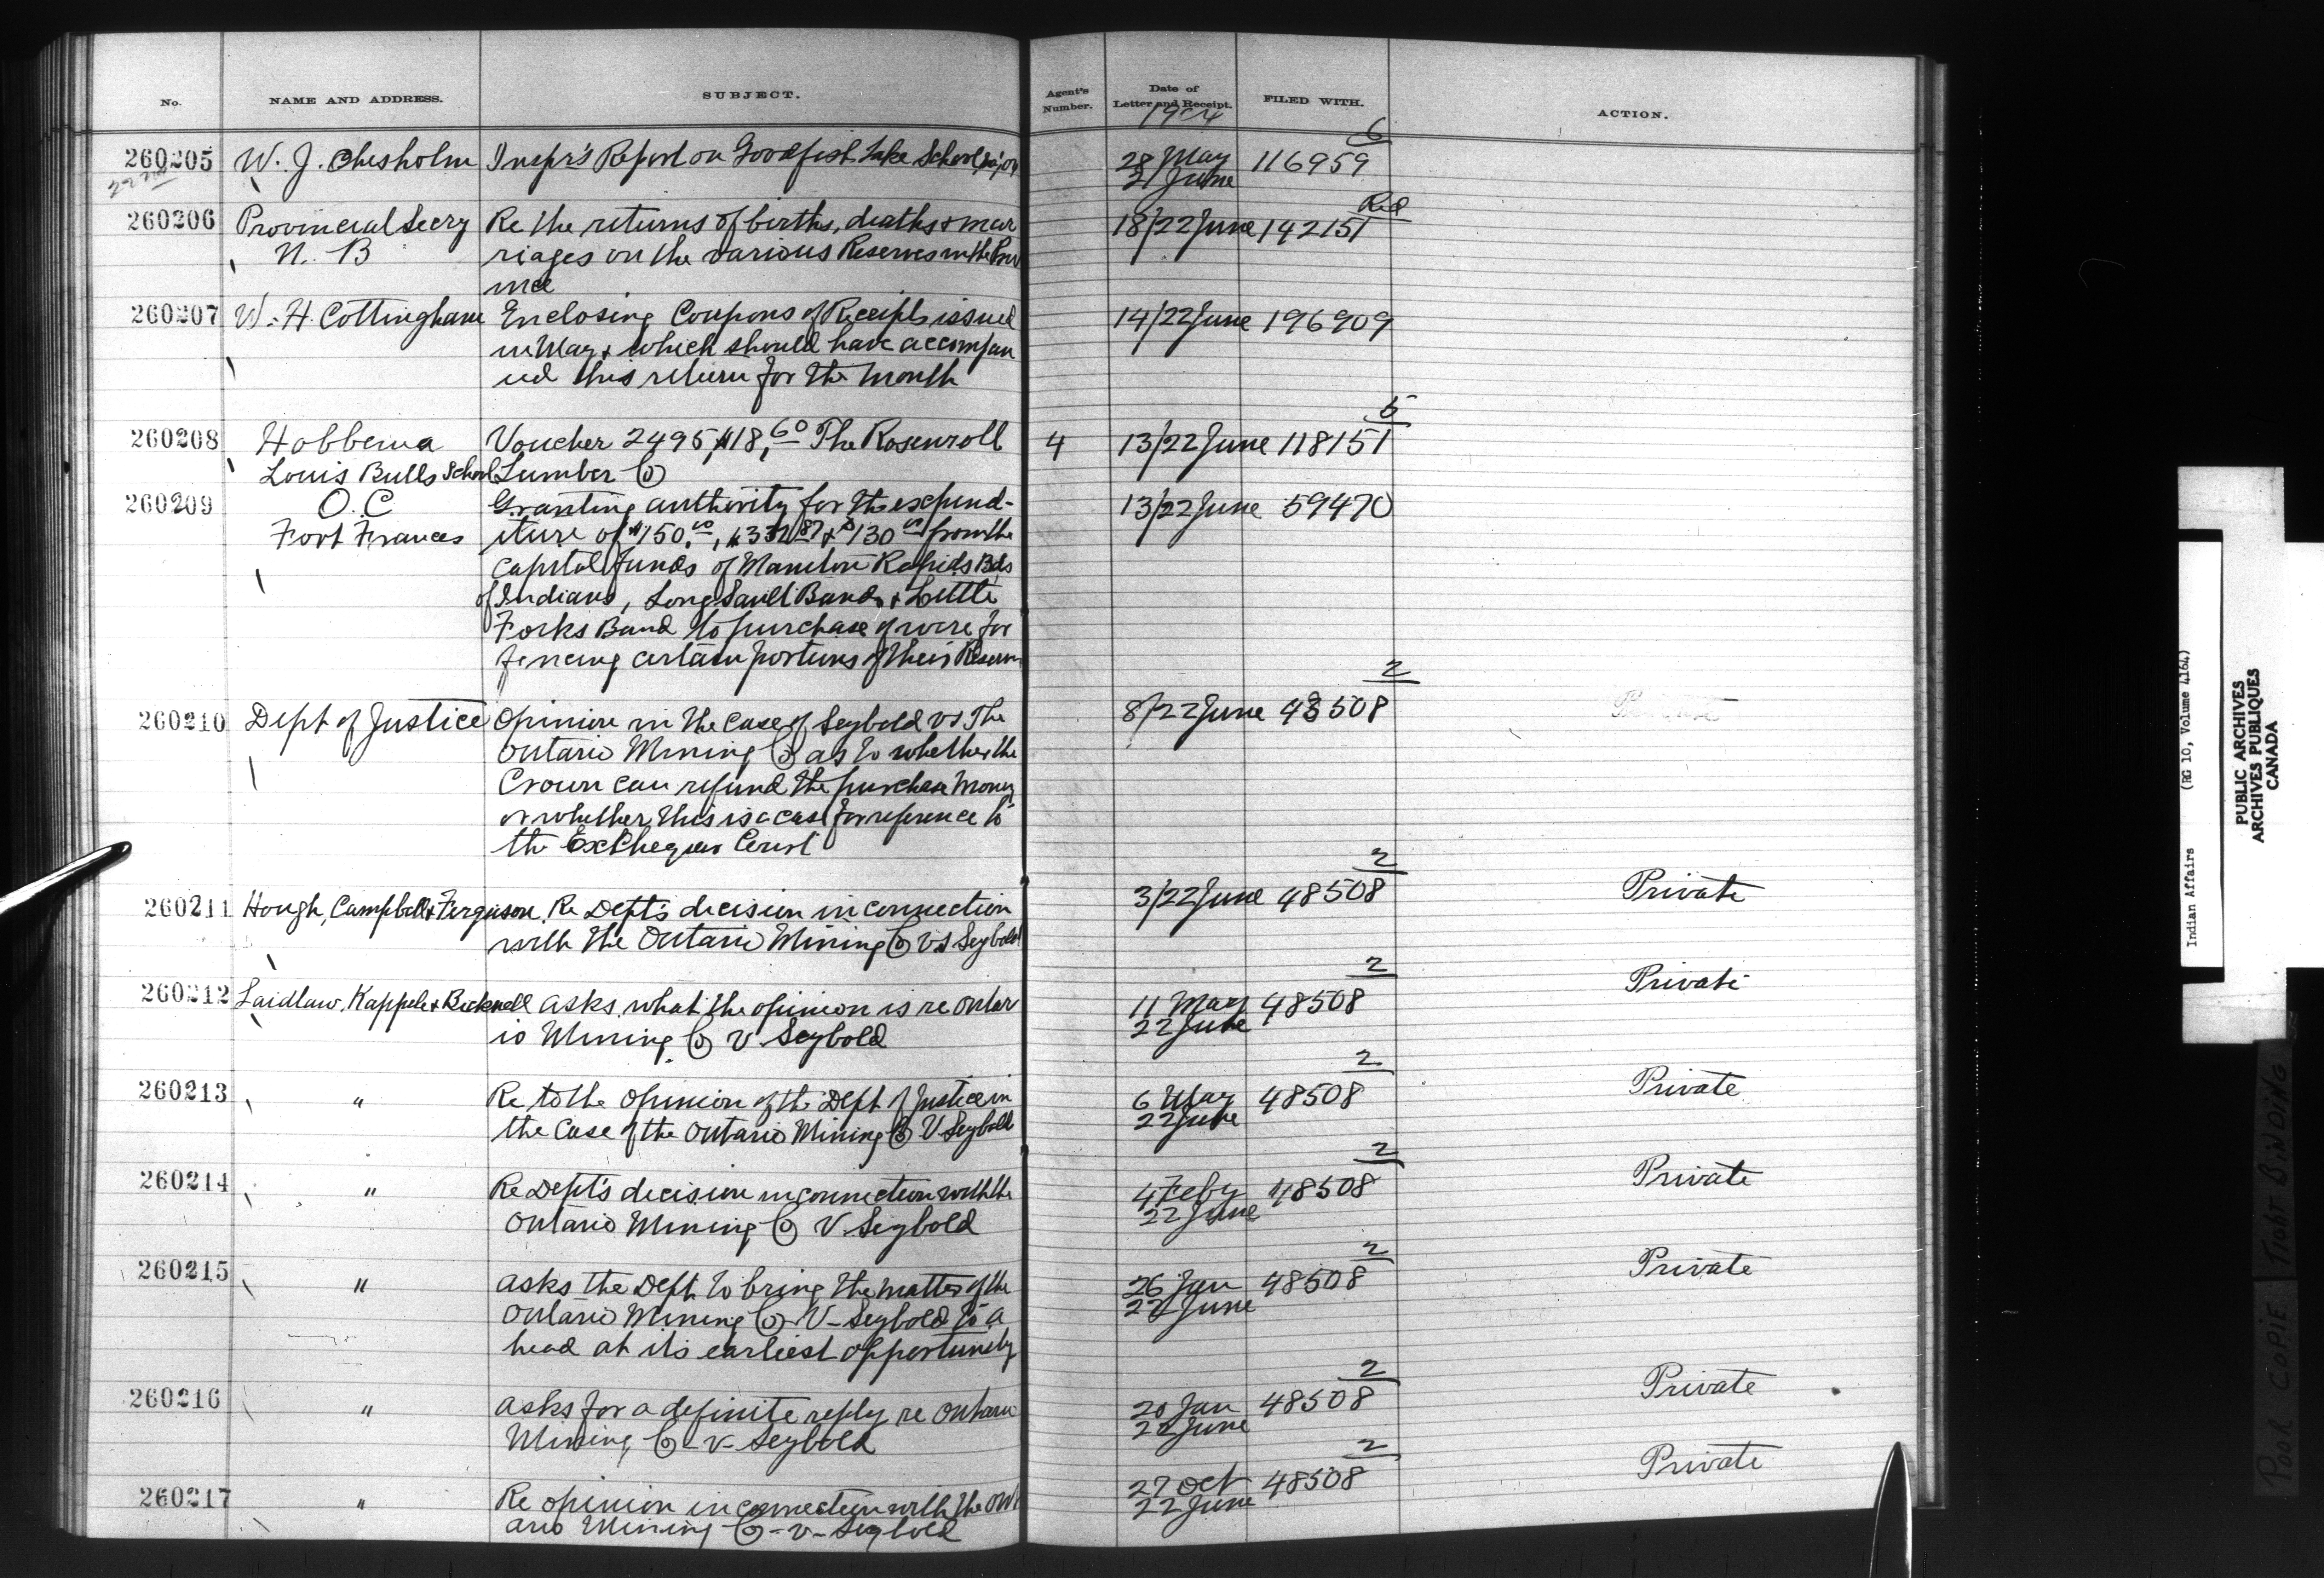 No. NAME AND ADDRESS. SUBJECT. Agent's Number. Date of Letter and Receipt. FILED WITH. ACTION.
1904
260205 W. J. Chisholm Inspr's Report on Goodfish Lake School 28 May 116959 6
22nd 21 June
260206 Provincial Secry Re the returns of births, deaths & mar 18/22 June 142151 Red
N. B riages on the various Reserves in the Prov
ince
260207 W. H. Cottingham Enclosing Coupons of Receipts issued 14/22 June 196909
in May & which should have accompan
ied this return for the month
260208 Hobbema Voucher 2495, $18,60 The Rosenroll 4 13/22 June 118151 5
Louis Bulls School Lumber Co
260209 O. C Granting authority for the expend- 13/22 June 59470
Fort Frances iture of $150.00, & $130 from the
Capital funds of Manitou Rapids Bds
of Indians, Long Sault Band & Little
Forks Band to purchase of wire for
fencing certain portions of their Reserve
260210 Dept of Justice Opinion in the case of Seybold vs The 8/22 June 48508 2
Ontario Mining Co as to whether the
Crown can refund the purchase money
or whether this is a case for reference to
the Exchequer Court
260211 Hough, Campbell & Ferguson Re Dept's decision in connection 3/22 June 48508 2 Private
with the Ontario Mining Co vs Seybold
260212 Laidlaw, Kappele & Bicknell asks what the opinion is re Ontar 11 May 48508 2 Private
io Mining Co v Seybold 22 June
260213 " Re to the opinion of the Dept of Justice in 6 May 48508 2 Private
the case of the Ontario Mining Co V Seybold 22 June
260214 " Re Dept's decision in connection with the 4 Feby 48508 2 Private
Ontario Mining Co V Seybold 22 June
260215 " asks the Dept to bring the matter of the 26 Jan 48508 2 Private
Ontario Mining Co V-Seybold to a 22 June
head at its earliest opportunity
260216 " asks for a definite reply re Ontario 20 Jan 48508 2 Private
Mining Co -v- Seybold 22 June
260217 " Re opinion in connection with the Ont 27 Oct 48508 2 Private
ario Mining Co -v- Seybold 22 June
Indian Affairs (RG 10, Volume 4164)
PUBLIC ARCHIVES
ARCHIVES PUBLIQUES
CANADA
POOR COPIE TIGHT BINDING